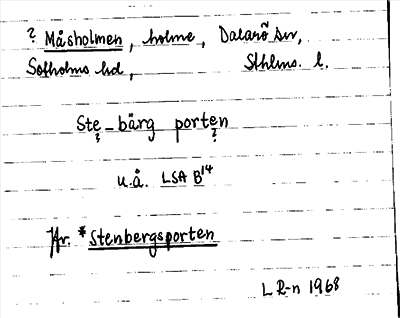 ? Måsholmen, holme, Dalarö sn,
Sotholms hd, Sthlms. l.
Ste-bärg porten
? ?
u.å. LSA B14
Jfr. *Stenbergsporten
L R-n 1968